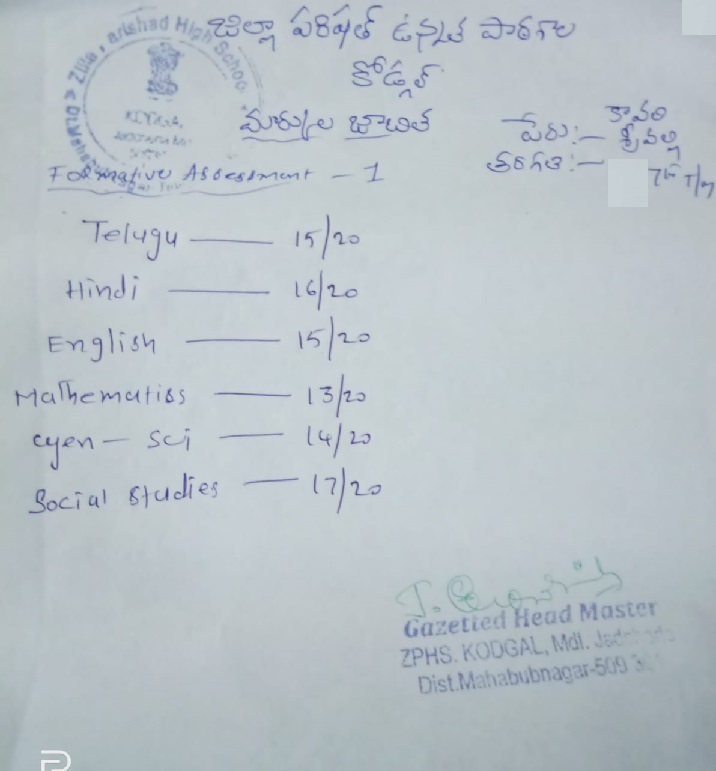 జిల్లా పరిషత్ ఉన్నత పాఠశాల
కోడ్గల్
మార్కుల జాబిత
పేరు:- కావలి
శ్రీవల్లి
తరగతి:- 7th T/m
Formative Assessment - 1
Telugu — 15/20
Hindi — 16/20
English — 15/20
Mathematiss — 13/20
Gen - sci — 14/20
Social studies — 17/20
Gazetted Head Master
ZPHS. KODGAL, Mdl.
Dist.Mahabubnagar-509
Zilla arishad High School